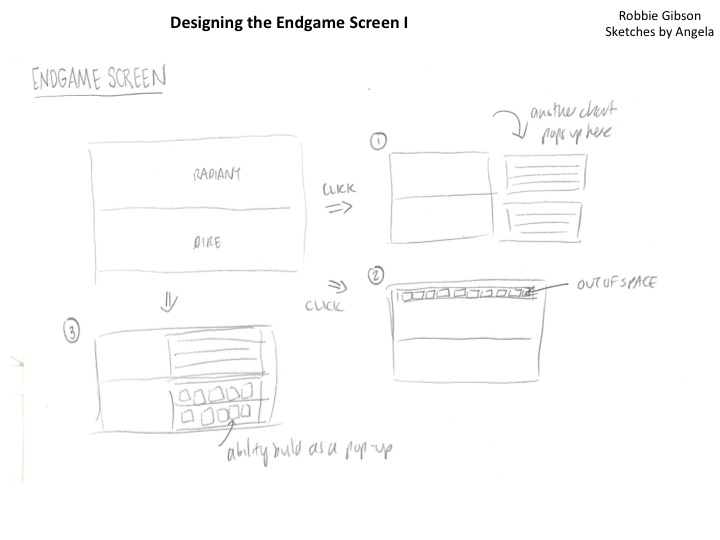 Designing the Endgame Screen I
Robbie Gibson
Sketches by Angela
ENDGAME SCREEN
RADIANT
DIRE
CLICK
①
another chart
pops up here
②
OUT OF SPACE
CLICK
③
ability build as a pop-up